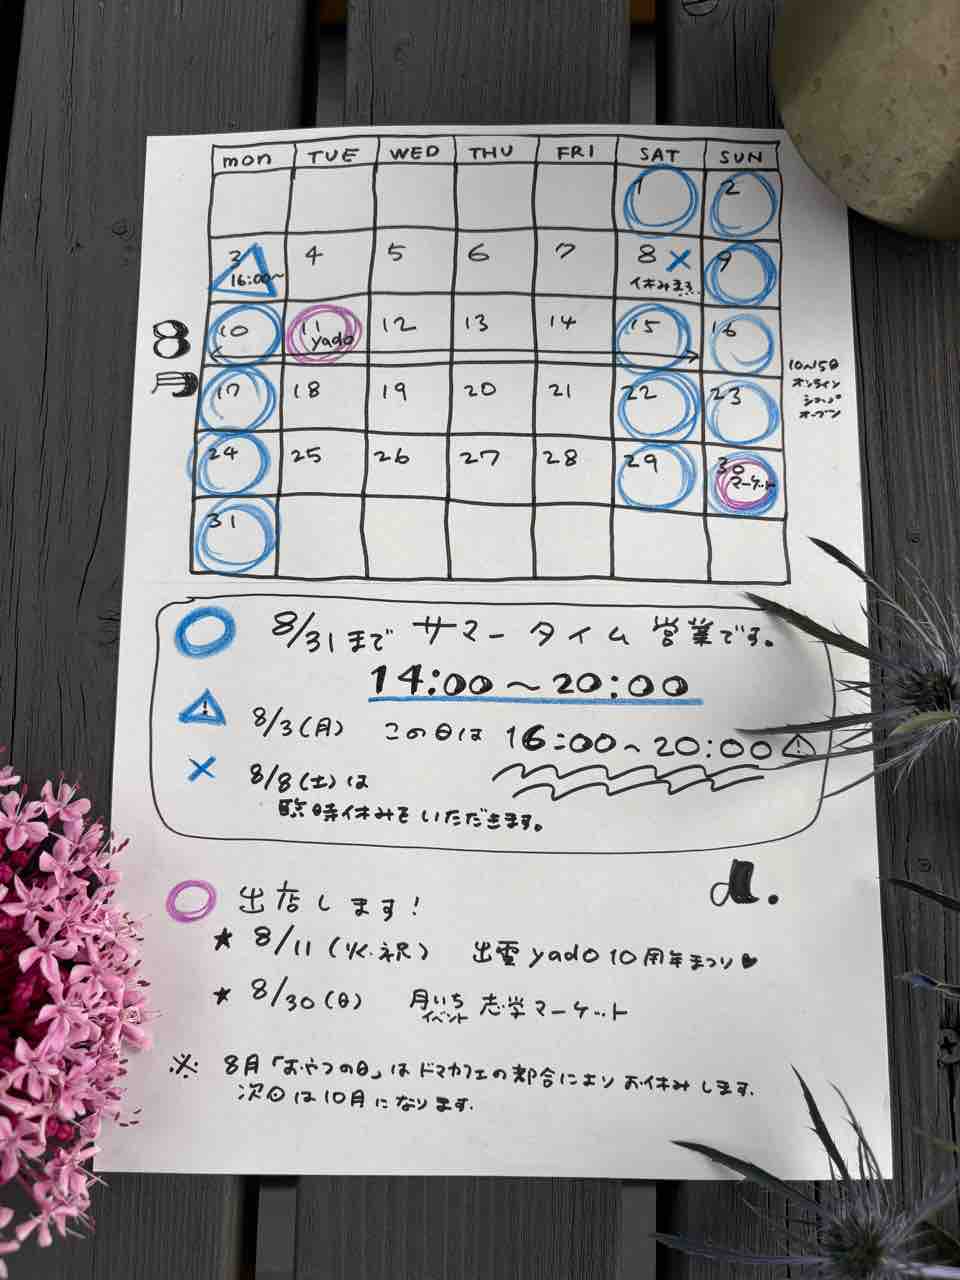 8月
mon TUE WED THU FRI SAT SUN
1 2
3 4 5 6 7 8 × 9
16:00~ 休みます
10 11 12 13 14 15 16
yado
10~15日
オンライン
ショップ
オープン
17 18 19 20 21 22 23
24 25 26 27 28 29 30
マーケット
31
8/31まで サマータイム 営業です。
14:00~20:00
8/3(月) この日は 16:00~20:00
× 8/8(土)は
臨時休みをいただきます。
a.
出店します!
★ 8/11(火・祝) 出雲yado10周年まつり♥
★ 8/30(日) 月いちイベント 志学マーケット
※ 8月「おやつの日」はドマカフェの都合によりお休みします.
次回は10月になります.